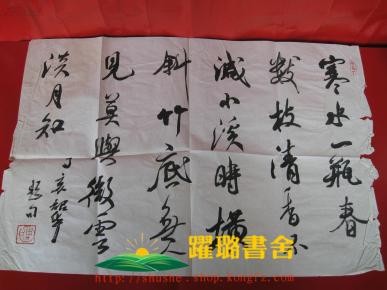 寒水一瓶春
数枝清香不
減小溪時橫
斜竹底無
見莫與微雲
淡月知
丁亥
躍璐書舍
http://shushe.shop.kongfz.com